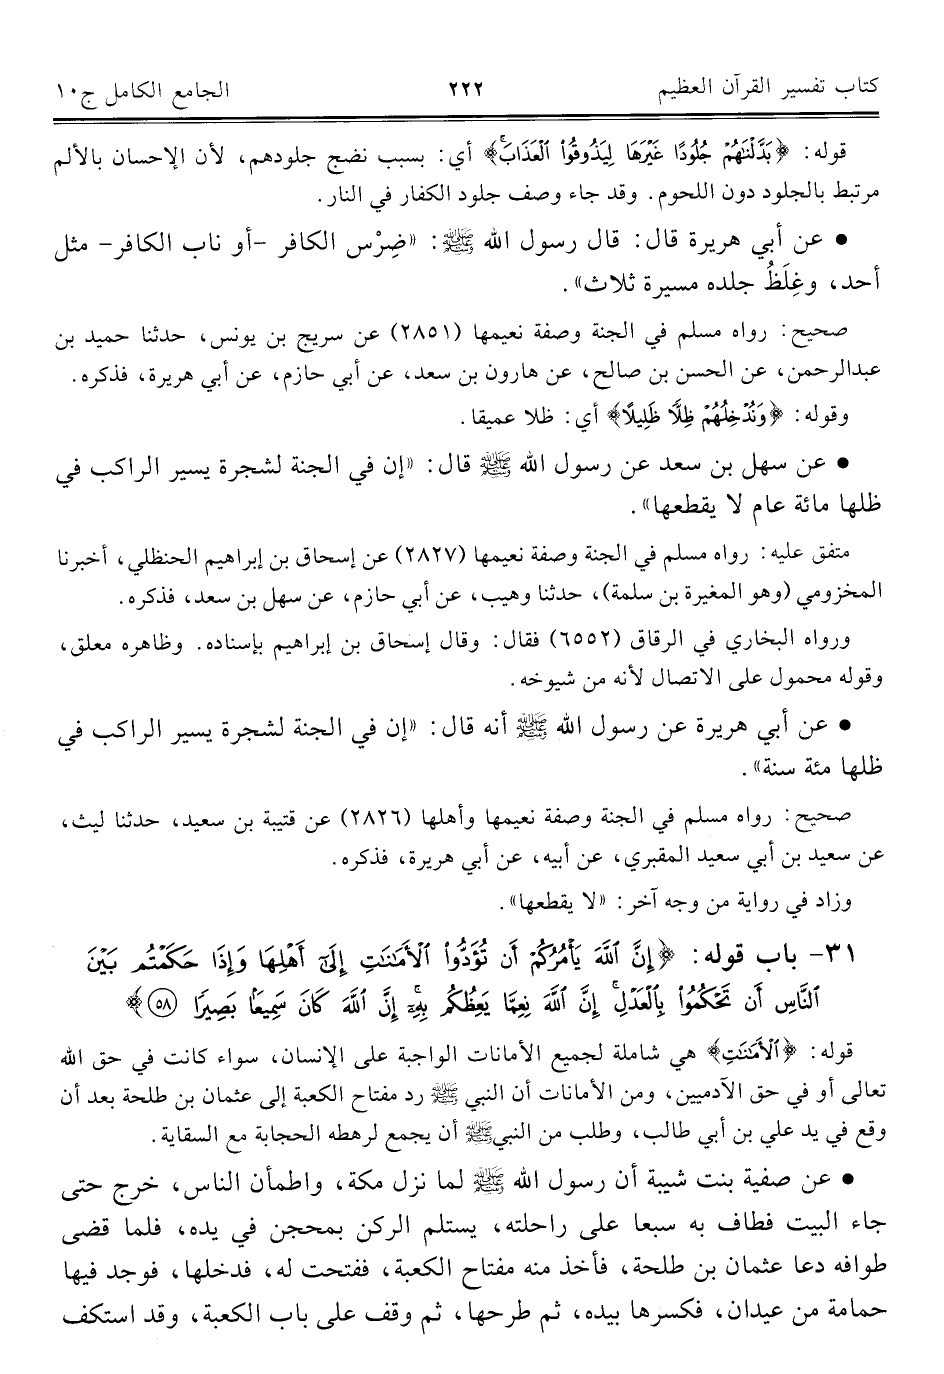 كتاب تفسير القرآن العظيم ٢٢٢ الجامع الكامل ج١٠
قوله: ﴿بَدَّلْنَٰهُمْ جُلُودًا غَيْرَهَا لِيَذُوقُوا۟ ٱلْعَذَابَۗ﴾ أي: بسبب نضج جلودهم، لأن الإحسان بالألم
مرتبط بالجلود دون اللحوم. وقد جاء وصف جلود الكفار في النار.
● عن أبي هريرة قال: قال رسول الله ﷺ: «ضِرْس الكافر -أو ناب الكافر- مثل
أحد، وغِلَظُ جلده مسيرة ثلاث».
صحيح: رواه مسلم في الجنة وصفة نعيمها (٢٨٥١) عن سريج بن يونس، حدثنا حميد بن
عبدالرحمن، عن الحسن بن صالح، عن هارون بن سعد، عن أبي حازم، عن أبي هريرة، فذكره.
وقوله: ﴿وَنُدْخِلُهُمْ ظِلًّا ظَلِيلًا﴾ أي: ظلا عميقا.
● عن سهل بن سعد عن رسول الله ﷺ قال: «إن في الجنة لشجرة يسير الراكب في
ظلها مائة عام لا يقطعها».
متفق عليه: رواه مسلم في الجنة وصفة نعيمها (٢٨٢٧) عن إسحاق بن إبراهيم الحنظلي، أخبرنا
المخزومي (وهو المغيرة بن سلمة)، حدثنا وهيب، عن أبي حازم، عن سهل بن سعد، فذكره.
ورواه البخاري في الرقاق (٦٥٥٢) فقال: وقال إسحاق بن إبراهيم بإسناده. وظاهره معلق،
وقوله محمول على الاتصال لأنه من شيوخه.
● عن أبي هريرة عن رسول الله ﷺ أنه قال: «إن في الجنة لشجرة يسير الراكب في
ظلها مئة سنة».
صحيح: رواه مسلم في الجنة وصفة نعيمها وأهلها (٢٨٢٦) عن قتيبة بن سعيد، حدثنا ليث،
عن سعيد بن أبي سعيد المقبري، عن أبيه، عن أبي هريرة، فذكره.
وزاد في رواية من وجه آخر: «لا يقطعها».
٣١- باب قوله: ﴿إِنَّ ٱللَّهَ يَأْمُرُكُمْ أَن تُؤَدُّوا۟ ٱلْأَمَٰنَٰتِ إِلَىٰٓ أَهْلِهَا وَإِذَا حَكَمْتُم بَيْنَ
ٱلنَّاسِ أَن تَحْكُمُوا۟ بِٱلْعَدْلِۚ إِنَّ ٱللَّهَ نِعِمَّا يَعِظُكُم بِهِۦٓۗ إِنَّ ٱللَّهَ كَانَ سَمِيعًۢا بَصِيرًا (٥٨)﴾
قوله: ﴿ٱلْأَمَٰنَٰتِ﴾ هي شاملة لجميع الأمانات الواجبة على الإنسان، سواء كانت في حق الله
تعالى أو في حق الآدميين، ومن الأمانات أن النبي ﷺ رد مفتاح الكعبة إلى عثمان بن طلحة بعد أن
وقع في يد علي بن أبي طالب، وطلب من النبيﷺ أن يجمع لرهطه الحجابة مع السقاية.
● عن صفية بنت شيبة أن رسول الله ﷺ لما نزل مكة، واطمأن الناس، خرج حتى
جاء البيت فطاف به سبعا على راحلته، يستلم الركن بمحجن في يده، فلما قضى
طوافه دعا عثمان بن طلحة، فأخذ منه مفتاح الكعبة، ففتحت له، فدخلها، فوجد فيها
حمامة من عيدان، فكسرها بيده، ثم طرحها، ثم وقف على باب الكعبة، وقد استكف